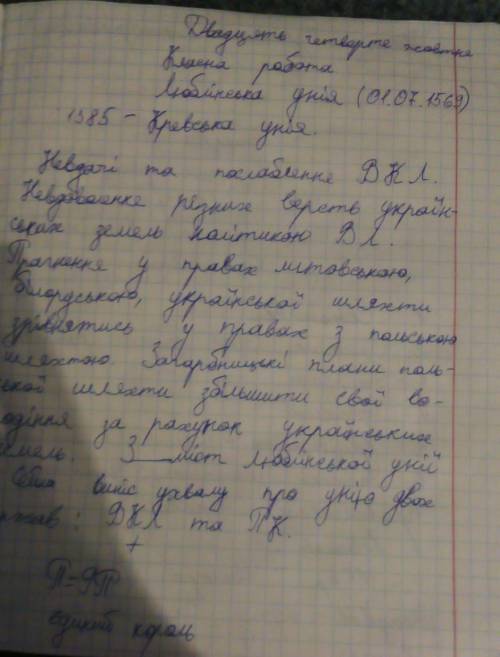 Двадцять четверте жовтня
Класна робота
Любінська унія (01.07.1569)
1385 - Кревська унія.
Невдачі та послаблення ВКЛ.
Невдоволенне різних верств україн-
ських земель політикою ВЛ.
Прагнення у правах літовською,
білордською, української шляхти
зрівнятись у правах з польською
шляхтою. Загарбницькі плани поль-
ської шляхти збільшити свої во-
лодіння за рахунок українських
земель. Зміст Любінської уній
Сейм виніс ухвалу про унію двох
держав: ВКЛ та ПК.
+
П=РП
єдиний король